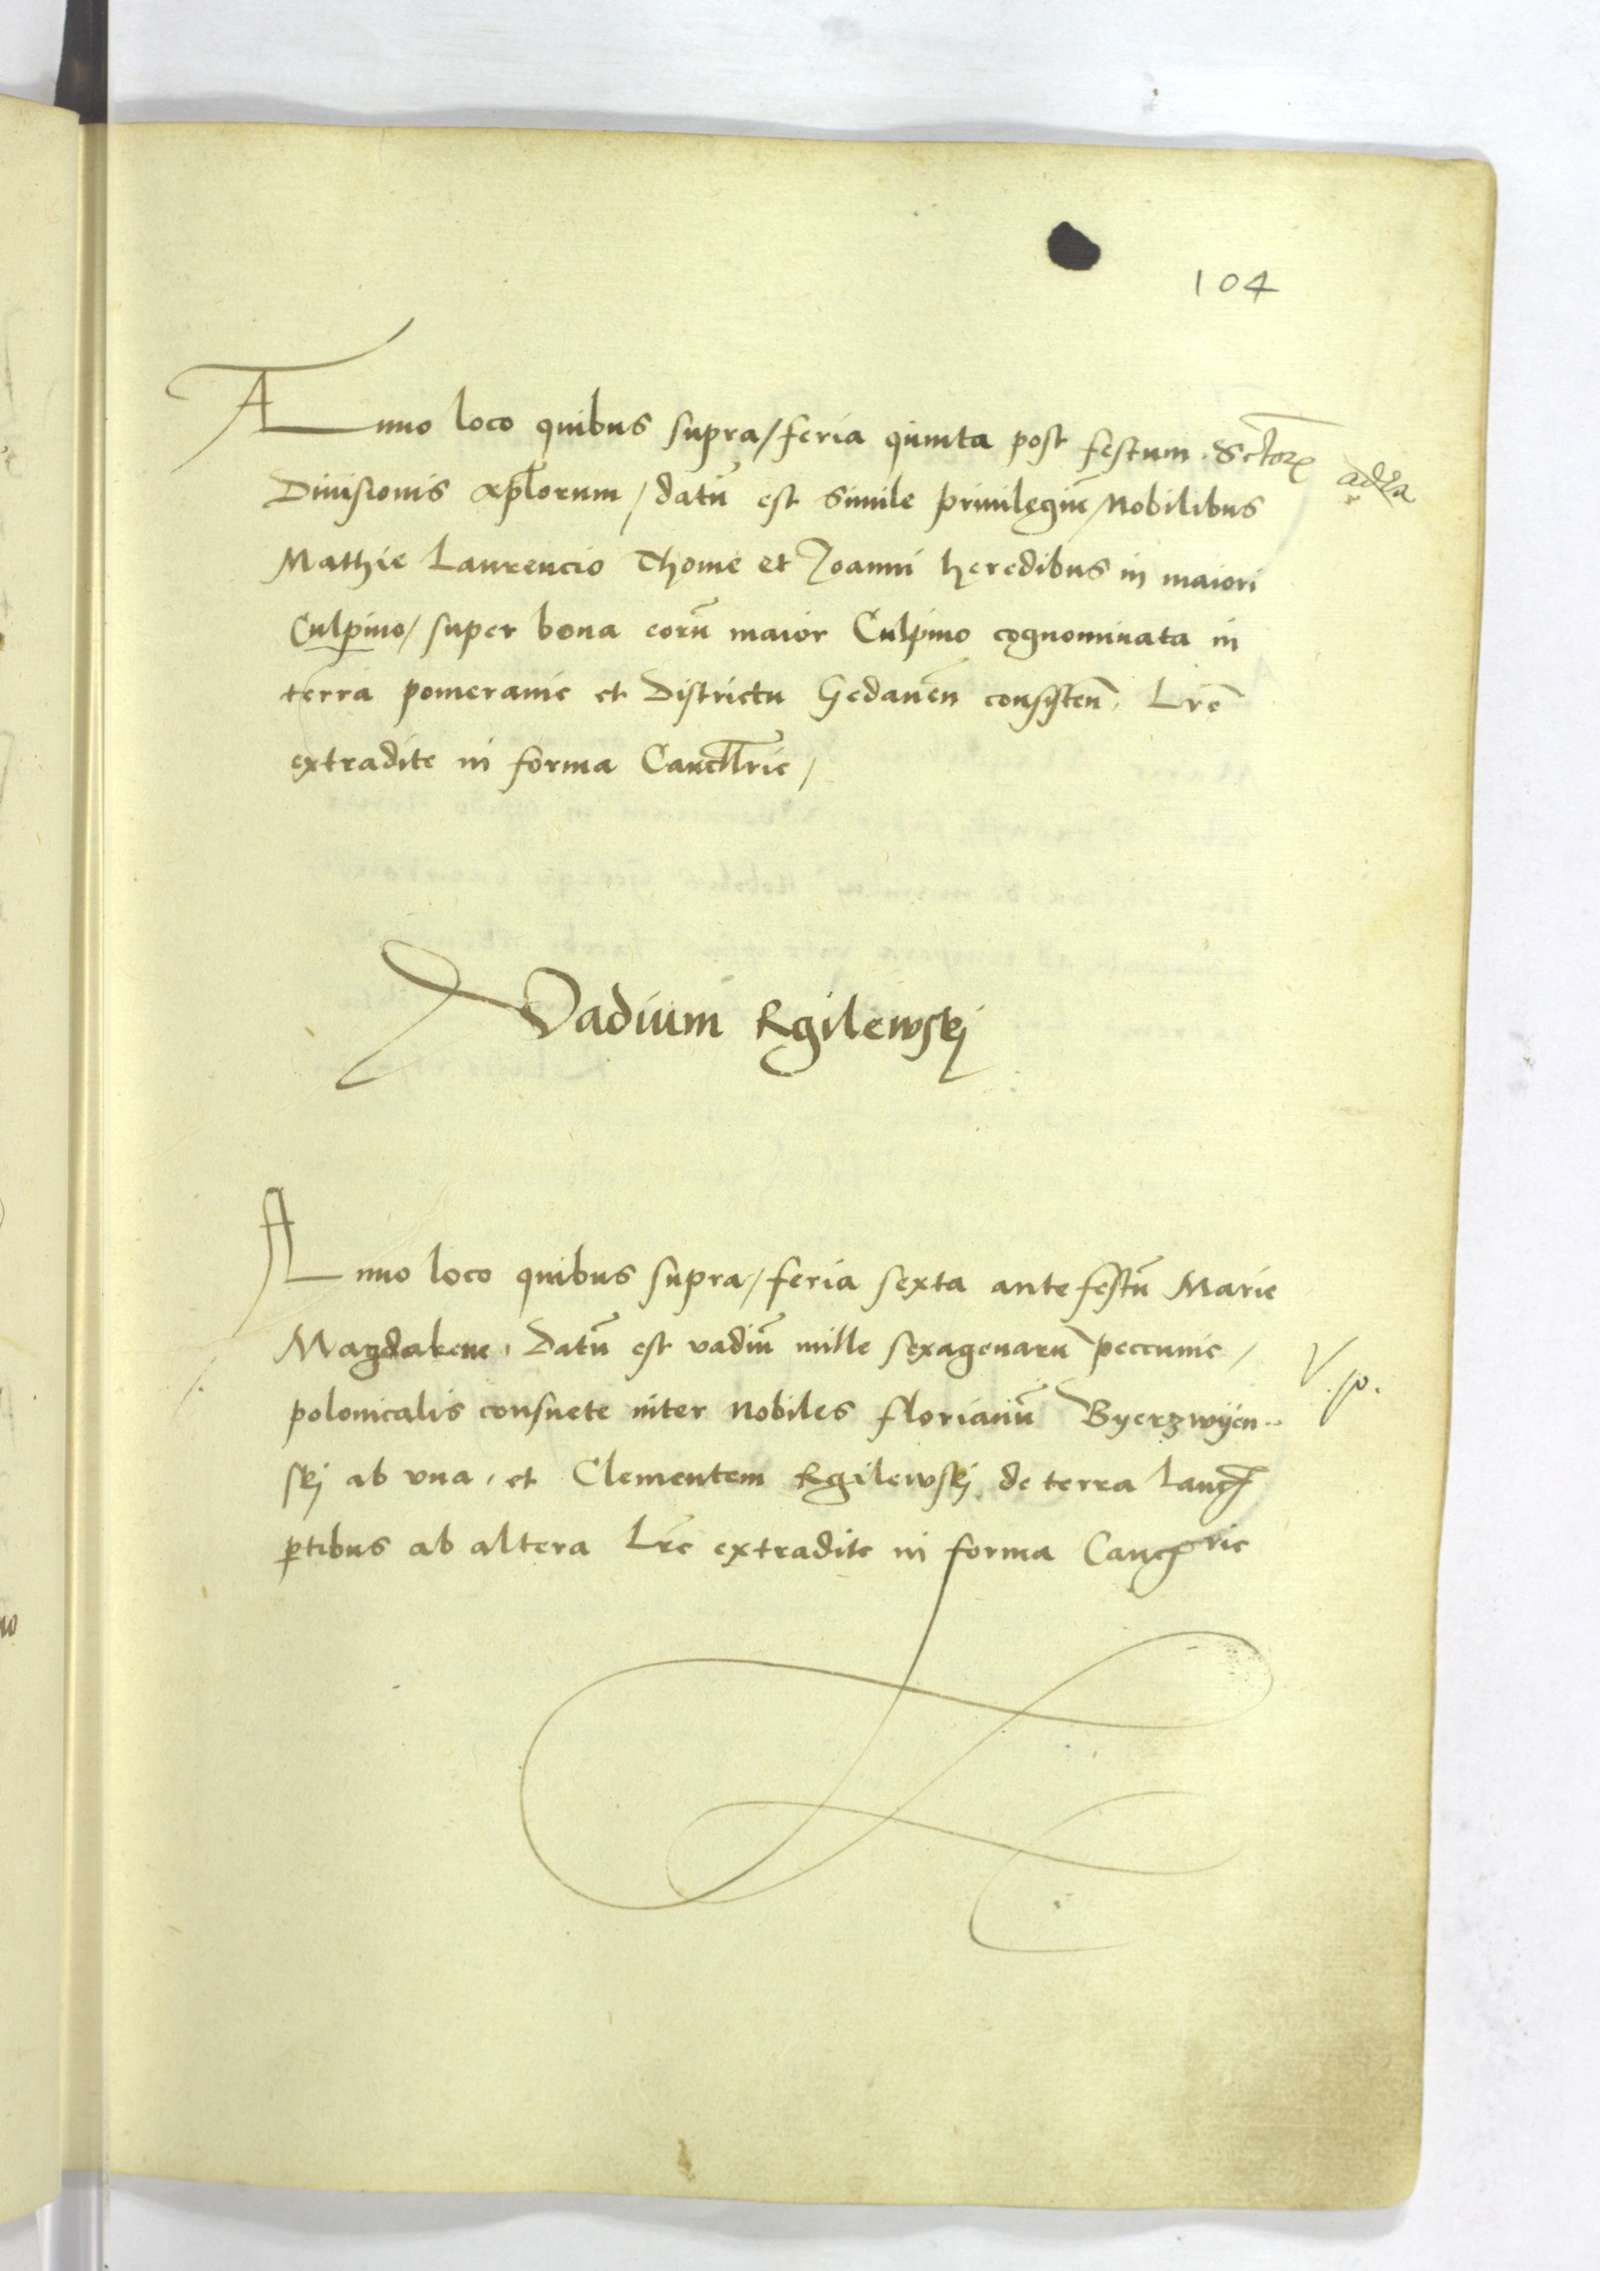 104
Anno loco quibus supra / feria quinta post festum Sctor(um)
Diuisionis aplorum / datu est simile priuilegiu / Nobilibus
Mathie Laurencio Thome et Joanni heredibus in maiori
Culpino / super bona eoru maior Culpino cognominata in
terra pomeranie et Districtu Gedanen consisten. Lre
extradite in forma Cancllrie /
Vadium Rgilewskj
Anno loco quibus supra / feria sexta ante festu Marie
Magdalene. Datu est vadiu mille sexagenaru peccunie /
polonicalis consuete inter nobiles florianu Byerzwyen..
skj ab vna, et Clementem Rgilewskj de terra Lanc
ptibus ab altera Lre extradite in forma Cancrie